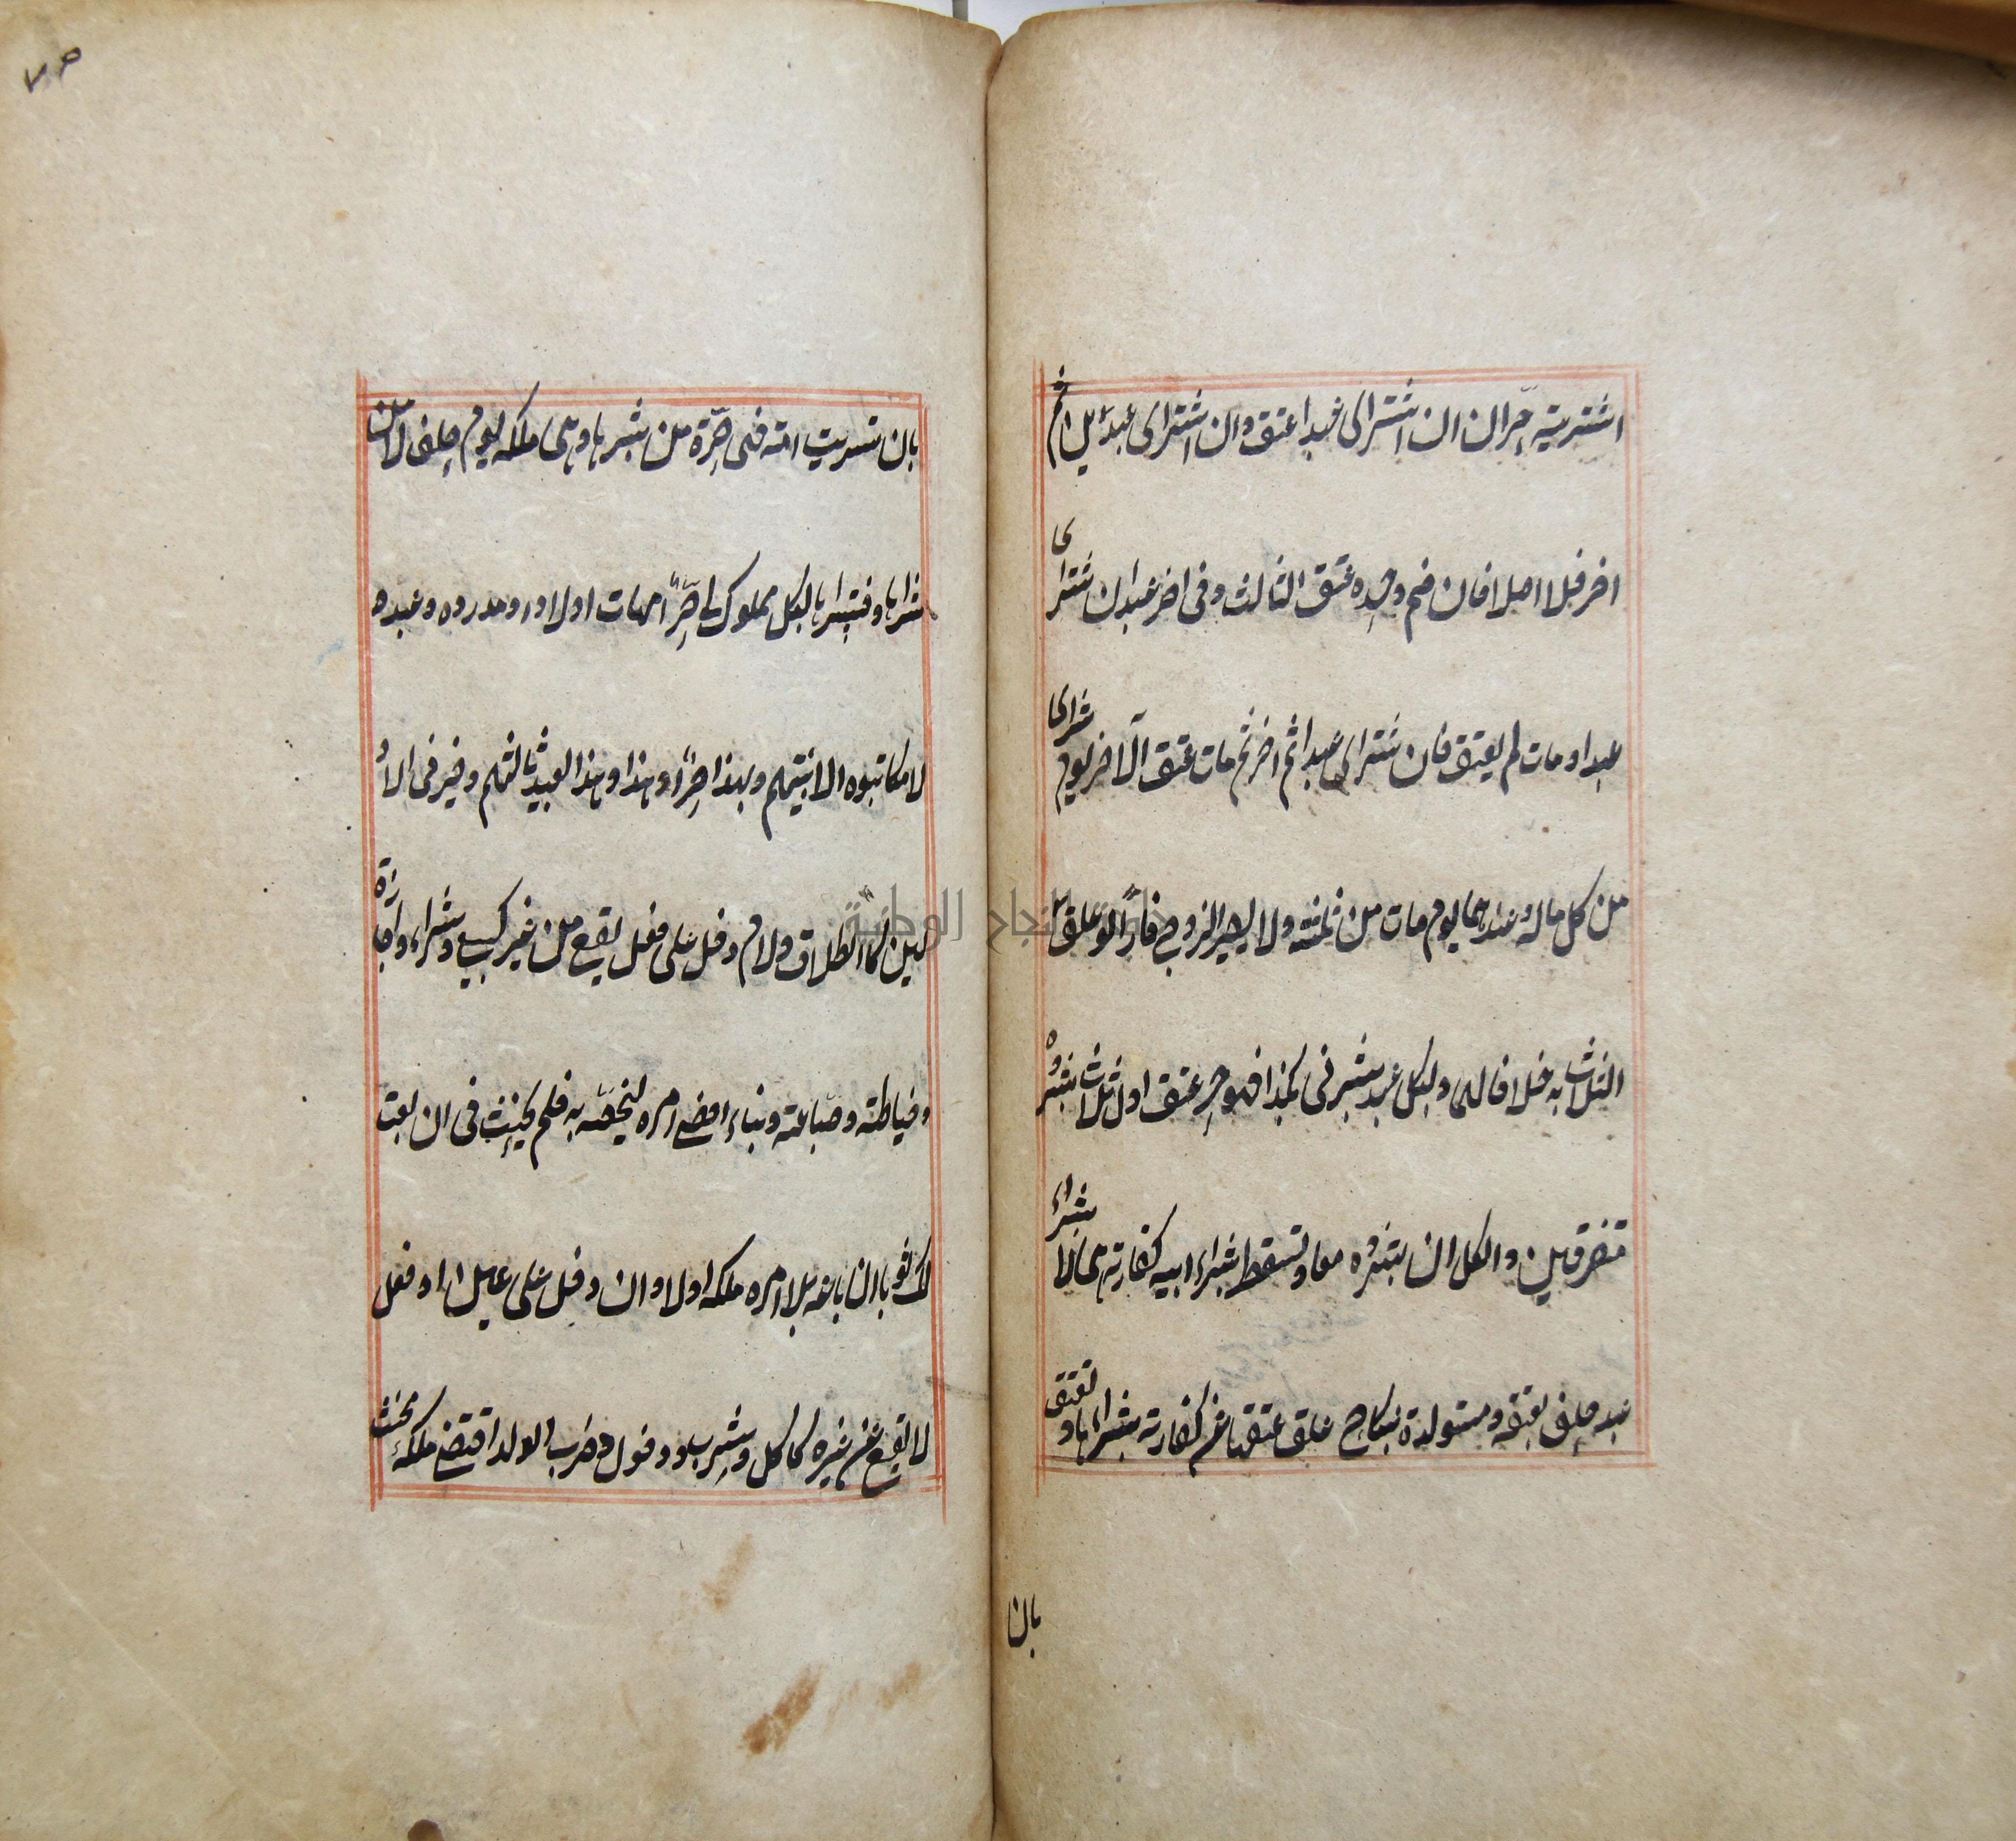 اشتريته حر ان اشترى عبدا عتق وان اشترى عبدين ثم
اخر فلا اصلا فان ضم وحده عتق الثالث وفى اخر عبد ان اشترى
عبدا ومات لم يعتق فان شترى عبدا ثم اخر ثم مات عتق الآخر يوم شرى
من كل ماله وعندهما يوم مات من ثلثه ولا يصير الزوج فارّا لو علق
الثلث به خلافا لهما وبكل عبد بشرنى بكذا فهو حر عتق اول ثلاث بشروه
متفرقين والكل ان بشروه معا وتسقط بشراء ابيه كفارته هى لا شراء
عبد حلف بعتقه ومستولدة بنكاح علق عتقها عن كفارته بشرائها وتعتق
بان
بان تسريت امة فهى حرة من تسراها وهى ملكه يوم حلف لا من
شراها فتسراها بكل مملوك لى حر امهات اولاده ومدبروه وعبيده
لا مكاتبوه الا بنيتهم وبهذا حر او هذا وهذا لعبيده ثالثهم وخير فى الاو
لين كالطلاق ولام دخل على فعل يقع من غيره كبيع وشراء واجارة
وخياطة وصباغة وبناء اقتضى امره ليخصه به فلم يحنث فى ان بعت
لك ثوبا ان باعه بلا امره ملكه اولا وان دخل على عين او فعل
لا يقع عن غيره كاكل وشرب ودخول وضرب الولد اقتضى ملكه فحنث